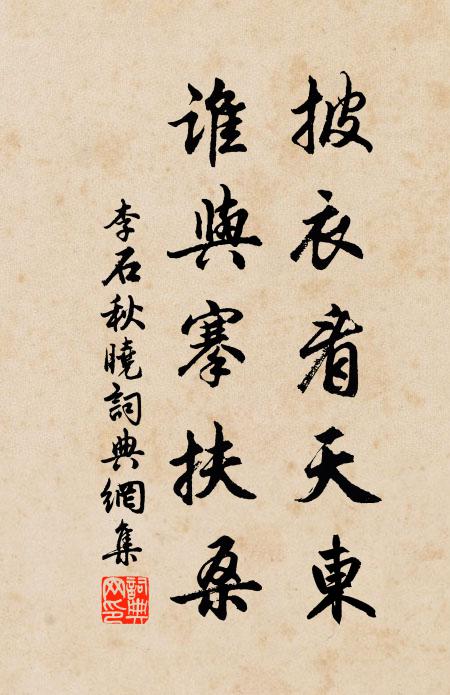 披衣看天東
誰與搴扶桑
李石秋曉詞典網集
詞典网印